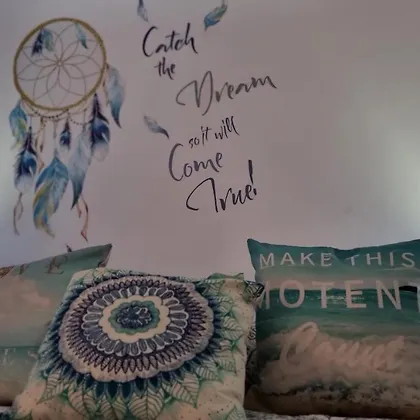 Catch
the
Dream
so it will
Come
True!
MAKE THIS
MOTEN
Count
ES